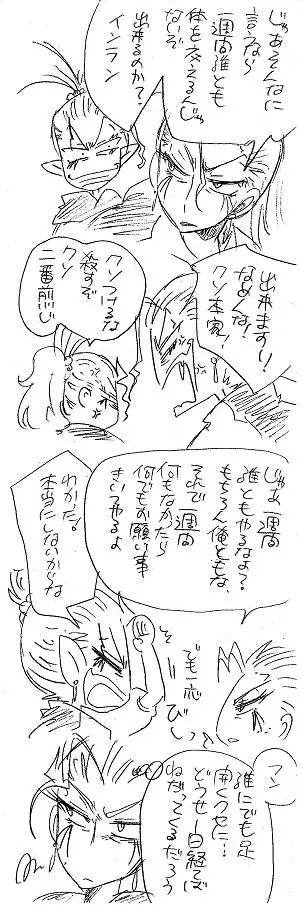 じゃあそんなに
言うなら
一週間誰とも
体を交えるんじゃ
ないぞ
出来るのか?
インラン
出来ますぅ!
なめんな!
クソ本家!
クソつけるな
殺すぞ
クソ
二番煎じ
じゃあ一週間
誰ともやるなよ?
もちろん俺ともな、
それで一週間
何もなかったら
何でもお願い事
きいてやるよ
わかった。
本当にしないからな
でも一応
びぃっ
フン
誰にでも足
開くクセに…
どうせ一日経てば
ねだってくるだろう